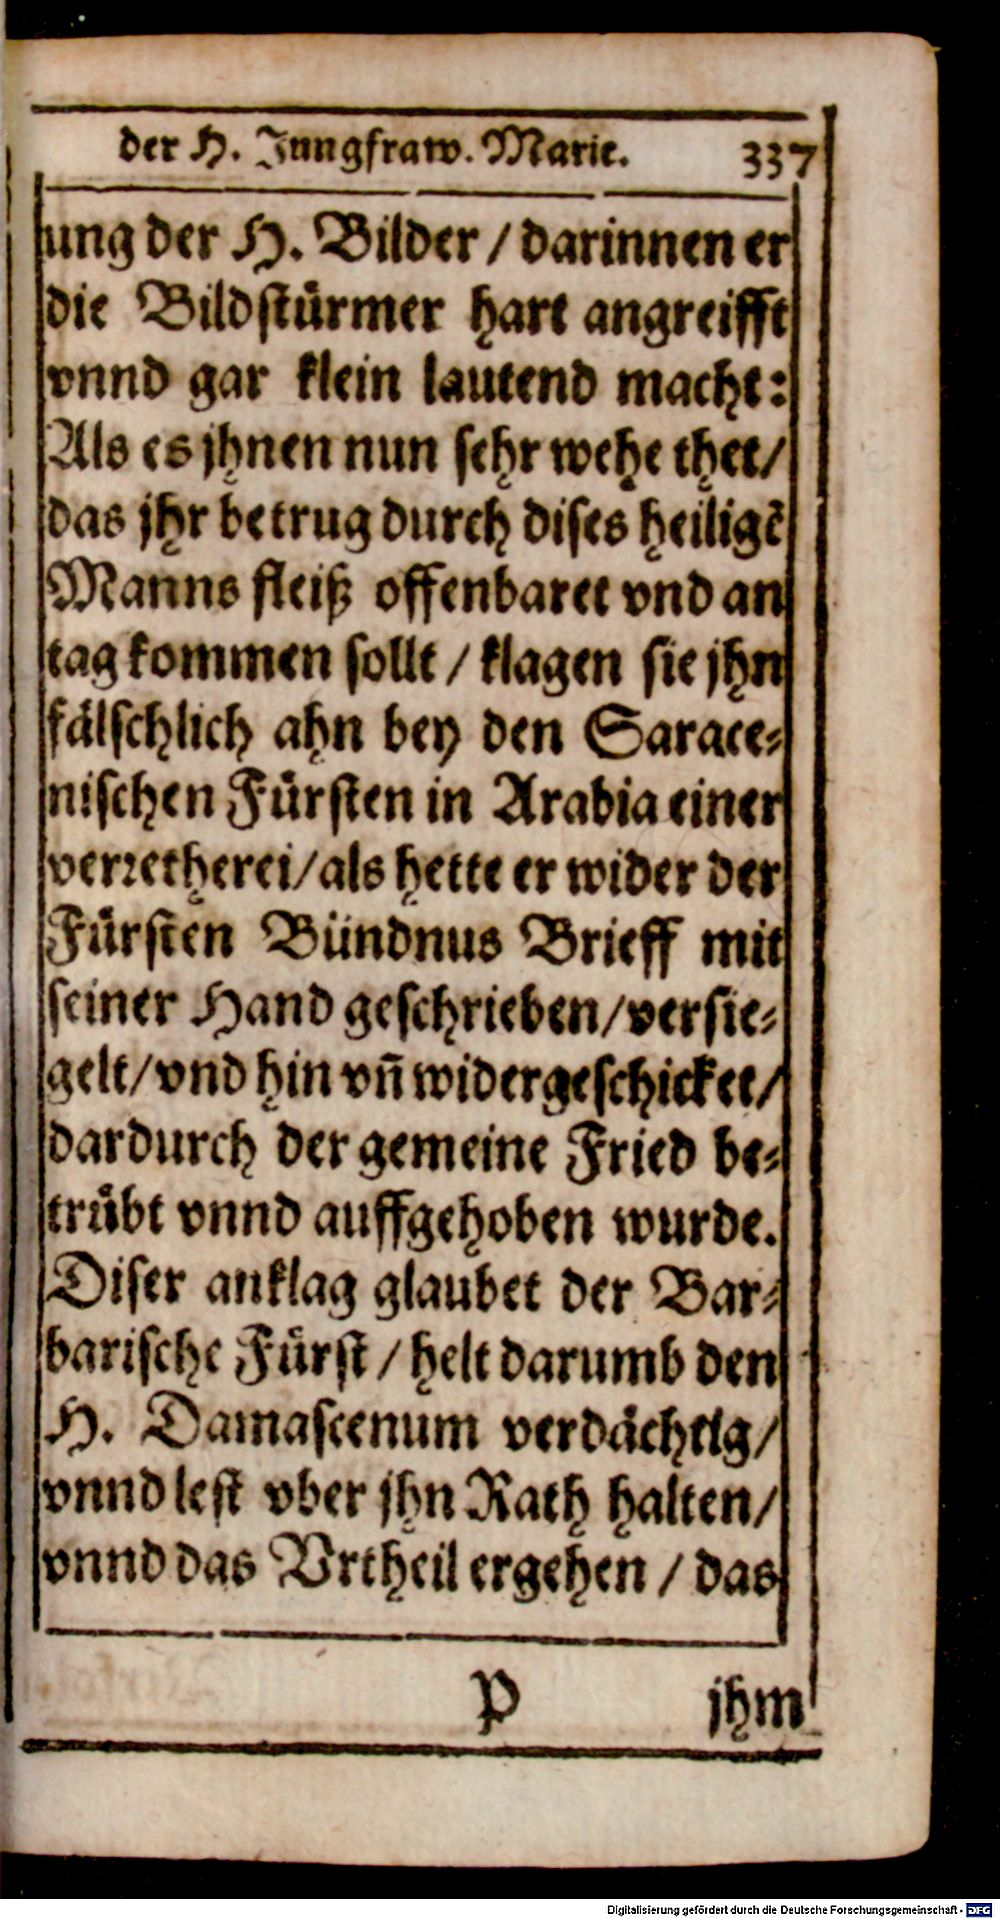 der H. Jungfraw. Marie. 337
ung der H. Bilder / darinnen er
die Bildstürmer hart angreifft
vnnd gar klein lautend macht:
Als es jhnen nun sehr wehe thet/
das jhr betrug durch dises heiligẽ
Manns fleiß offenbaret vnd an
tag kommen sollt / klagen sie jhn
fälschlich ahn bey den Sarace-
nischen Fürsten in Arabia einer
verretherei/als hette er wider der
Fürsten Bündnus Brieff mit
seiner Hand geschrieben/versie-
gelt/vnd hin vñ widergeschicket/
dardurch der gemeine Fried be-
trübt vnnd auffgehoben wurde.
Diser anklag glaubet der Bar-
barische Fürst / helt darumb den
H. Damascenum verdächtig/
vnnd lest vber jhn Rath halten/
vnnd das Vrtheil ergehen / das
P jhm
Digitalisierung gefördert durch die Deutsche Forschungsgemeinschaft - DFG